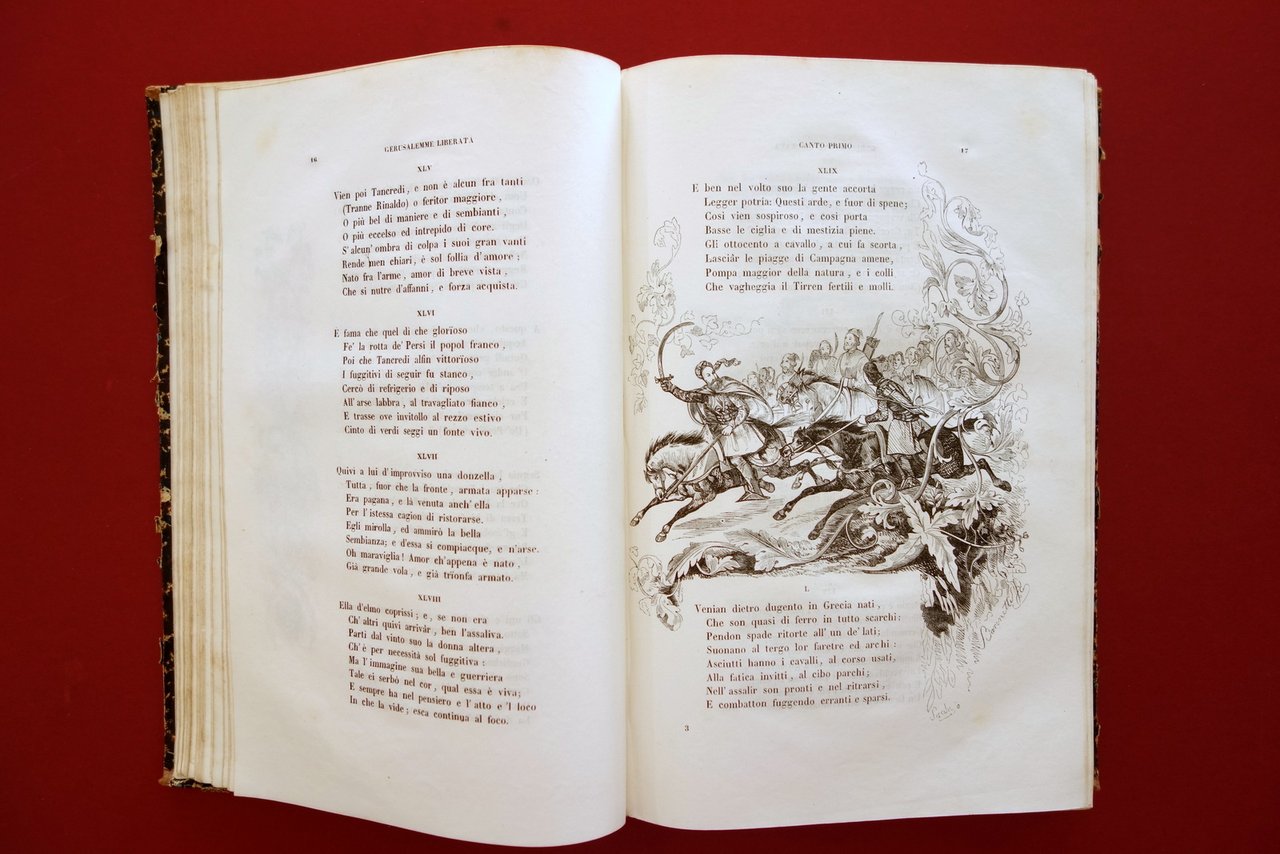 16
GERUSALEMME LIBERATA
XLV
Vien poi Tancredi, e non è alcun fra tanti
(Tranne Rinaldo) o feritor maggiore,
O più bel di maniere e di sembianti,
O più eccelso ed intrepido di core.
S'alcun'ombra di colpa i suoi gran vanti
Rende men chiari, è sol follia d'amore;
Nato fra l'arme, amor di breve vista,
Che si nutre d'affanni, e forza acquista.
XLVI
E fama che quel dì che glorïoso
Fe' la rotta de' Persi il popol franco,
Poi che Tancredi alfin vittorïoso
I fuggitivi di seguir fu stanco,
Cercò di refrigerio e di riposo
All'arse labbra, al travagliato fianco,
E trasse ove invitollo al rezzo estivo
Cinto di verdi seggi un fonte vivo.
XLVII
Quivi a lui d'improvviso una donzella,
Tutta, fuor che la fronte, armata apparse:
Era pagana, e là venuta anch'ella
Per l'istessa cagion di ristorarse.
Egli mirolla, ed ammirò la bella
Sembianza; e d'essa si compiacque, e n'arse.
Oh maraviglia! Amor ch'appena è nato,
Già grande vola, e già trïonfa armato.
XLVIII
Ella d'elmo coprissi; e, se non era
Ch'altri quivi arrivâr, ben l'assaliva.
Partì dal vinto suo la donna altera,
Ch'è per necessità sol fuggitiva:
Ma l'immagine sua bella e guerriera
Tale ei serbò nel cor, qual essa è viva;
E sempre ha nel pensiero e l'atto e 'l loco
In che la vide; esca continua al foco.
CANTO PRIMO
17
XLIX
E ben nel volto suo la gente accorta
Legger potria: Questi arde, e fuor di spene;
Così vien sospiroso, e così porta
Basse le ciglia e di mestizia piene.
Gli ottocento a cavallo, a cui fa scorta,
Lasciâr le piagge di Campagna amene,
Pompa maggior della natura, e i colli
Che vagheggia il Tirren fertili e molli.
L
Venian dietro dugento in Grecia nati,
Che son quasi di ferro in tutto scarchi:
Pendon spade ritorte all'un de' lati;
Suonano al tergo lor faretre ed archi:
Asciutti hanno i cavalli, al corso usati,
Alla fatica invitti, al cibo parchi;
Nell'assalir son pronti e nel ritrarsi,
E combatton fuggendo erranti e sparsi.
3